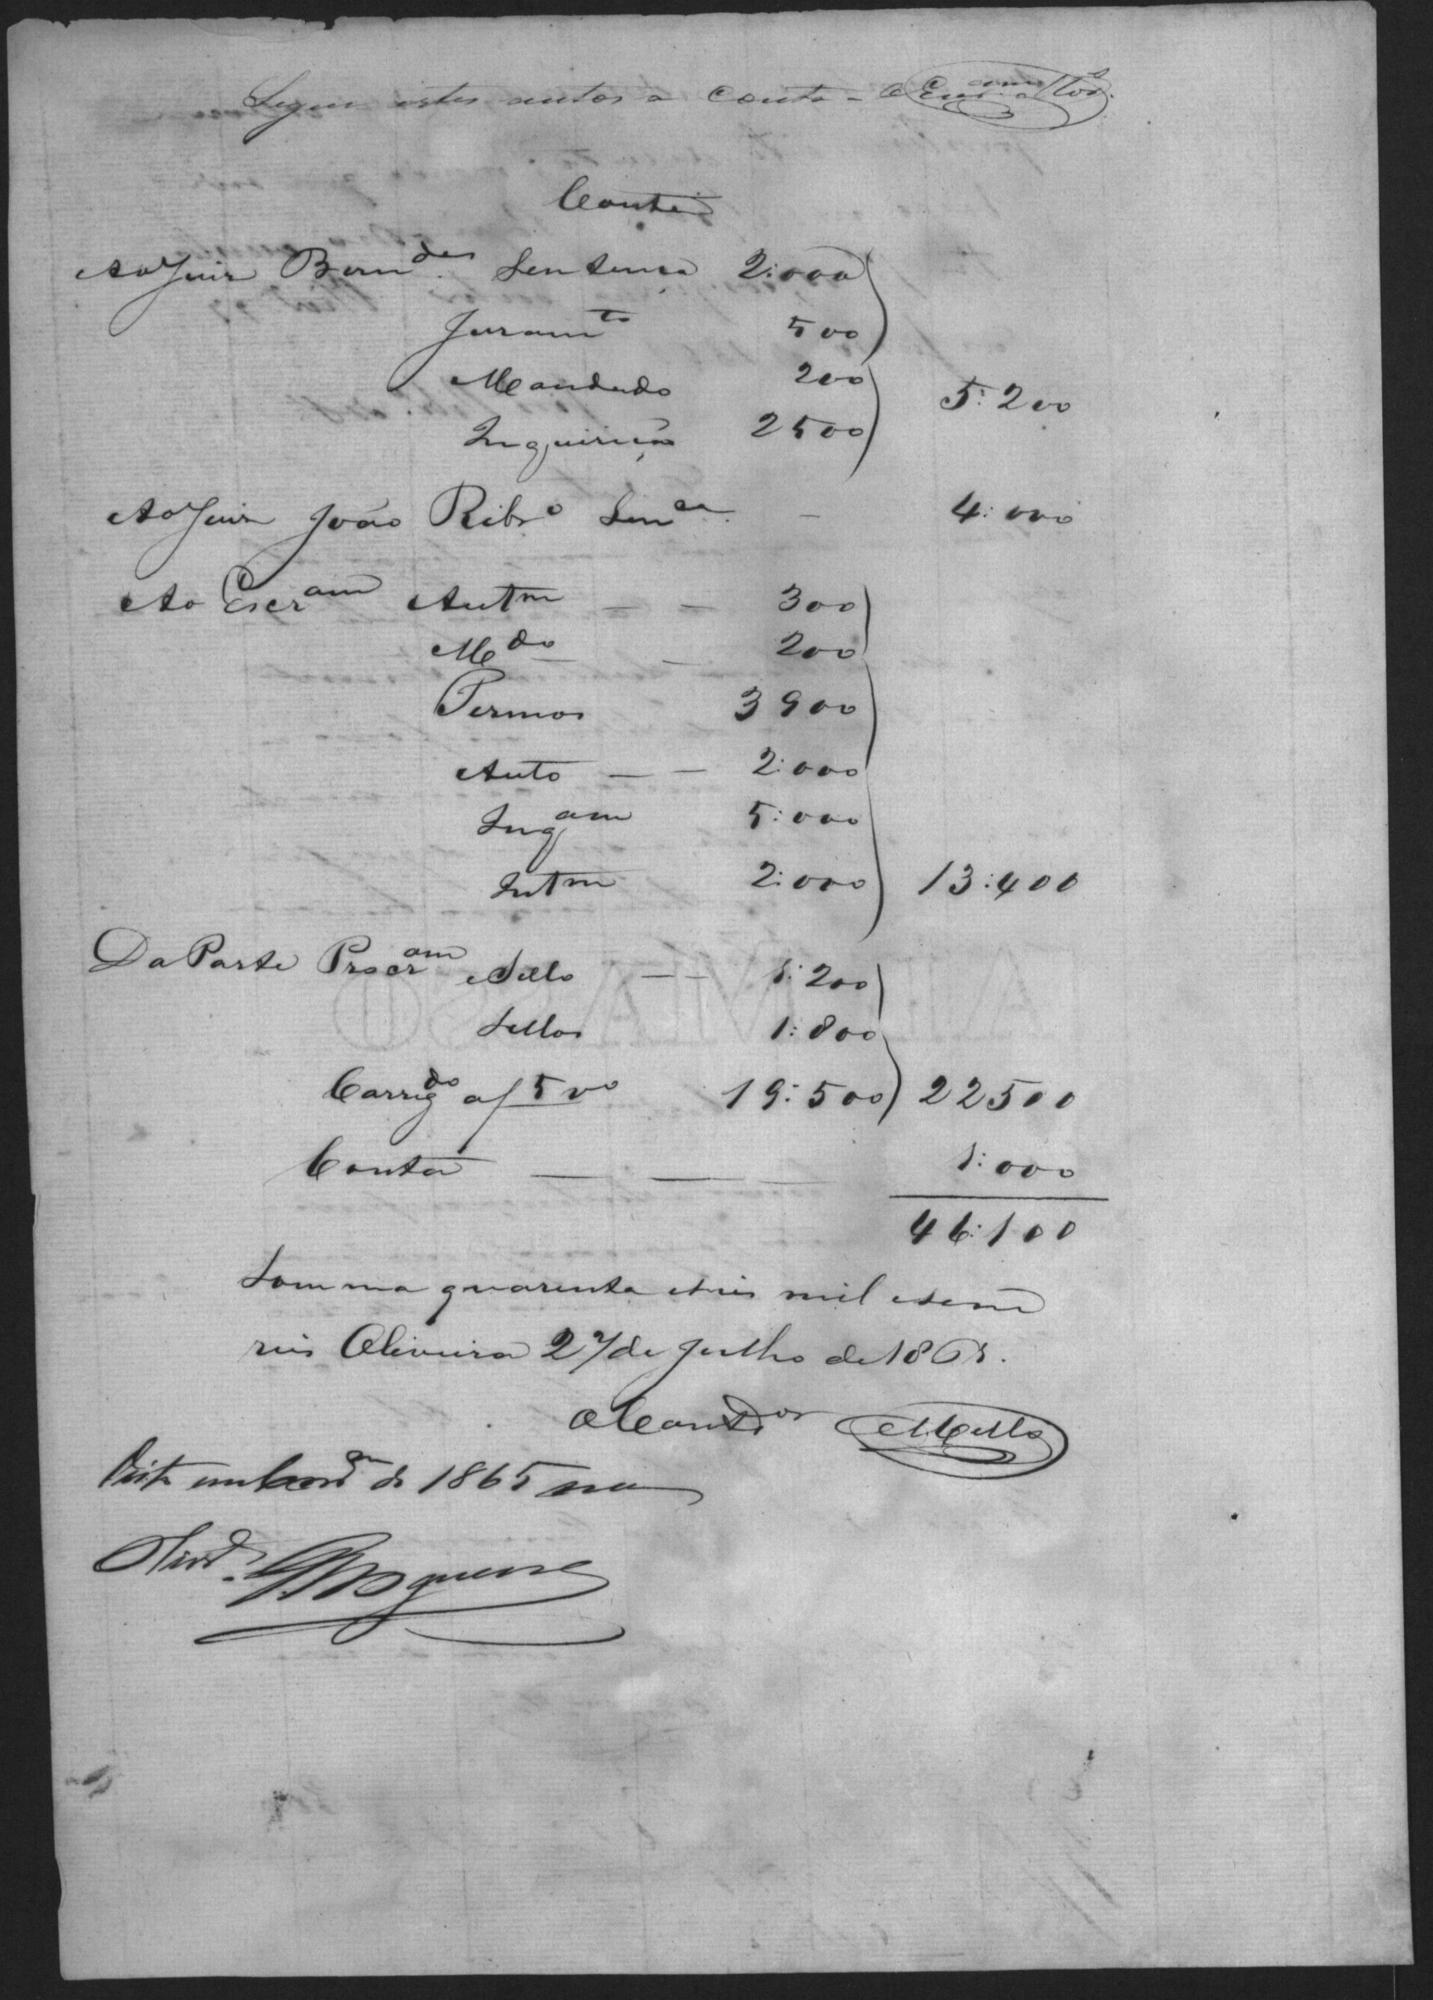 Segue estes autos a Conta - O
Conta
Ao Juiz Bern.des Sentença 2:000
Juram.to 500
Mandado 200
5:200
Inquirição 2500
Ao Juiz João Ribr.o Sen.ca - 4:000
Ao Escr.am Aut.m - - 300
M.do - - 200
Termos 3900
Auto - - 2:000
Inq.am 5:000
Int.m 2:000 13:400
Da Parte Procr.am Sello - - 1:200
Sellos 1:800
19:500 22500
Conta - - - 1:000
46:100
Somma quarenta e seis mil e cem
reis Oliveira 27 de Julho de 1865.
O Contd.or Mello
Visto em Corr.am de 1865